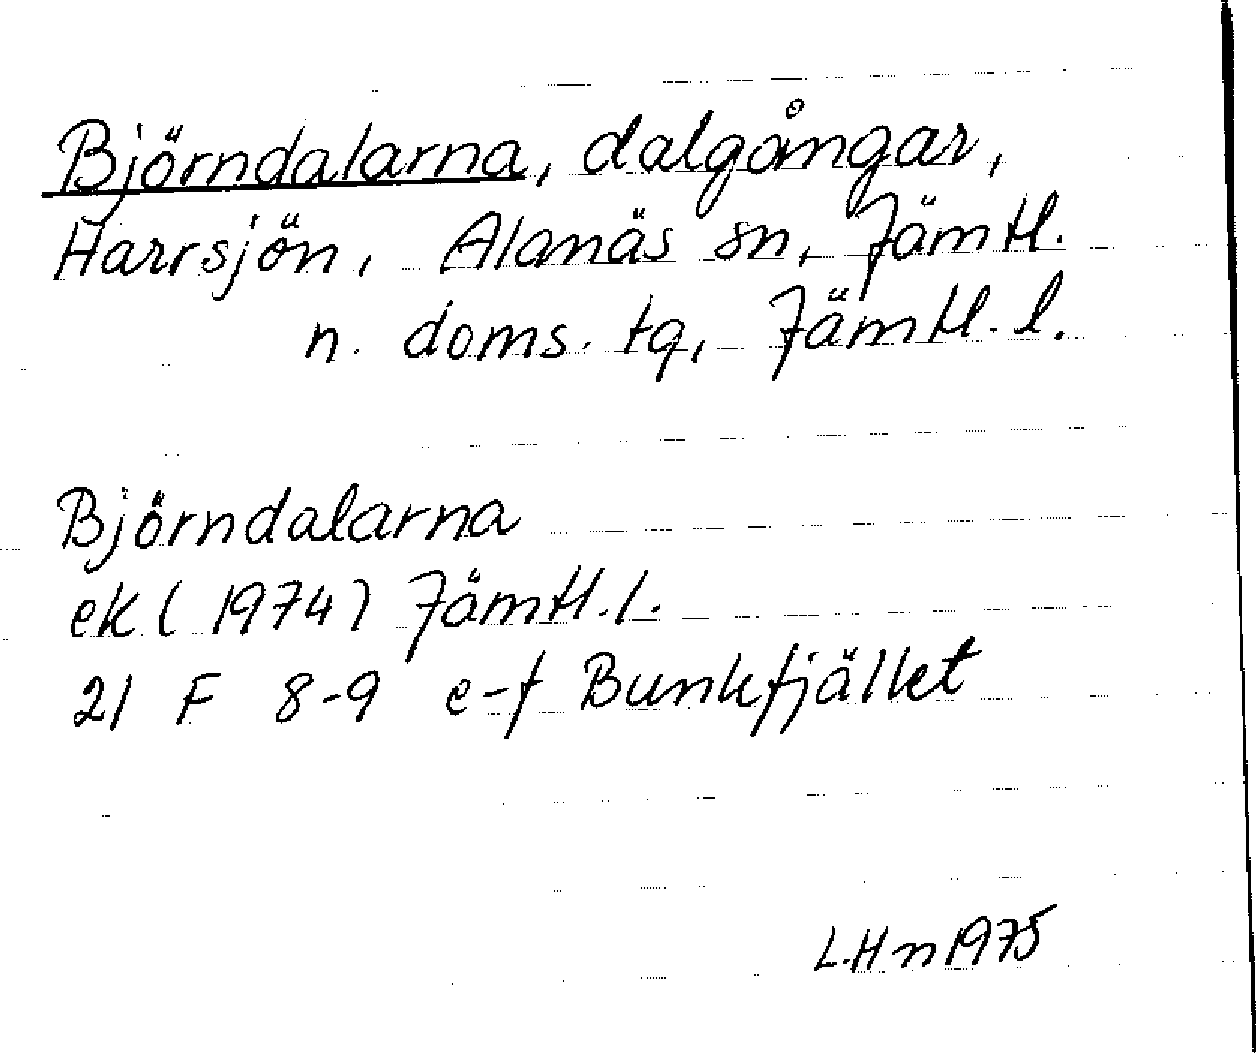 Björndalarna, dalgångar,
Harrsjön, Alanäs sn, Jämtl.
n. doms. tg, Jämtl. l.
Björndalarna
ek (1974) Jämtl. l.
21 F 8-9 e-f Bunkfjället
L.Hn 1975